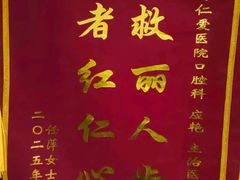 仁爱医院口腔科 应艳 主治医
救丽人
者红仁
任萍女士
二〇二五年